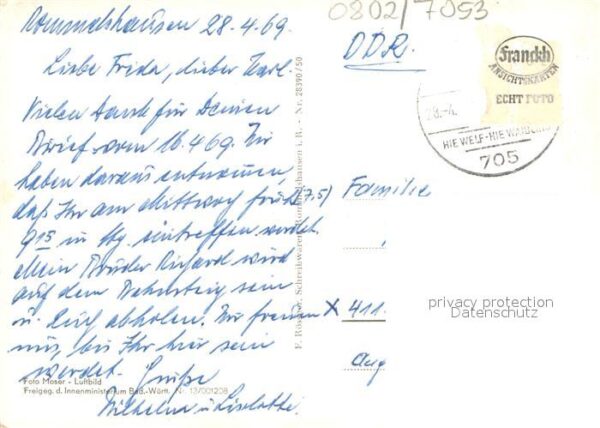 0802/7053
Rommelshausen 28.4.69.
Liebe Frida, lieber Karl.
Vielen Dank für Deinen
Brief vom 16.4.69. Wir
haben daraus entnommen,
daß Ihr am Mittwoch früh (7,5)
9 15 in eintreffen werdet.
Mein Bruder Richard wird
auf dem Bahnsteig sein
u. Euch abholen. Wir freuen
uns, bis Ihr hier sein
werdet. Grüße
Wilhelm u. Liselotte.
Foto Moser - Luftbild
Freigeg. d. Innenministerium Bad.-Württ. Nr.
F. Schreibwaren, Rommelshausen i. R. - Nr. 28390/50
DDR.
Franckh
ANSICHTSKARTEN
ECHT FOTO
28.-4.
HIE WELF-HIE WAIBLING
705
Familie
X 411
Aug
privacy protection
Datenschutz